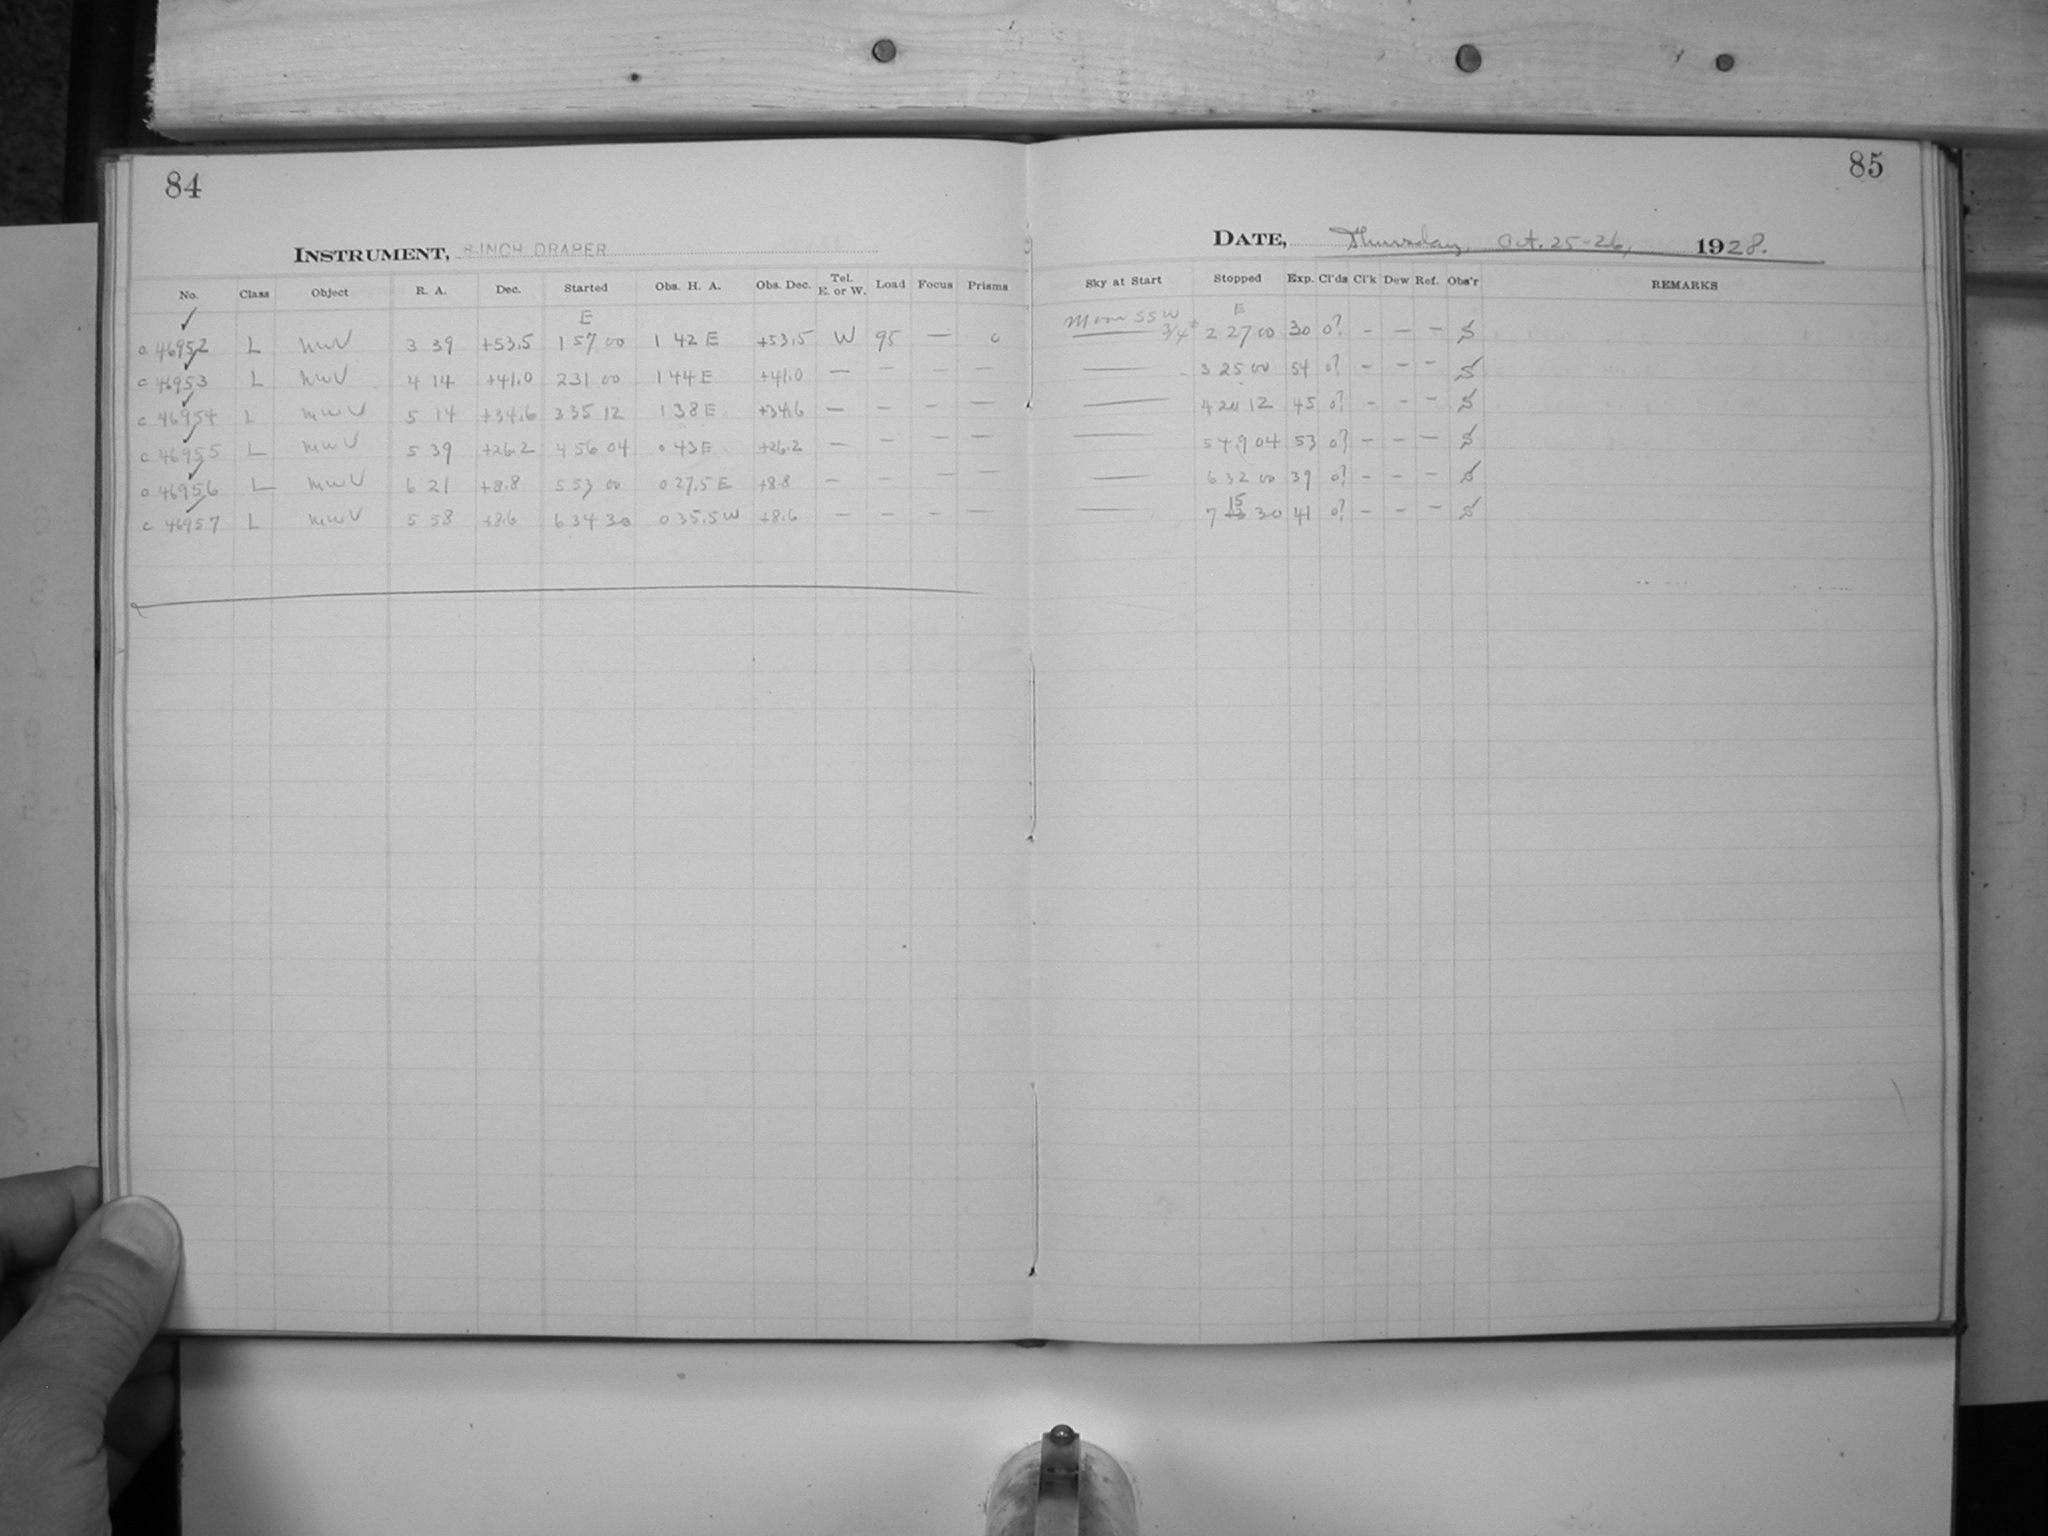 84
INSTRUMENT, 8-INCH DRAPER
No. Class Object R. A. Dec. Started Obs. H. A. Obs. Dec. Tel. E. or W. Load Focus Prisms
E
c 46952 L MWV 3 39 +53.5 1 57 00 1 42 E +53.5 W 95 — 0
c 46953 L MWV 4 14 +41.0 2 31 00 1 44 E +41.0 — — — —
c 46954 L MWV 5 14 +34.6 3 35 12 1 38 E +34.6 — — — —
c 46955 L MWV 5 39 +26.2 4 56 04 0 43 E +26.2 — — — —
c 46956 L MWV 6 21 +8.8 5 53 00 0 27.5 E +8.8 — — — —
c 46957 L MWV 5 58 +8.6 6 34 30 0 35.5 W +8.6 — — — —
85
DATE, Thursday, Oct. 25-26, 1928.
Sky at Start Stopped Exp. Cl'ds Cl'k Dew Ref. Obs'r REMARKS
Moon SSW E
3/4 2 27 00 30 0? – – – S
3 25 00 54 0? – – – S
4 12 45 0? – – – S
5 49 04 53 0? – – – S
6 32 00 39 0? – – – S
7 15 30 41 0? – – – S